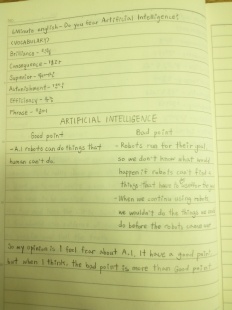 6Minute english - Do you fear Artificial Intelligence?
<VOCABULARY>
Brilliance -
Consequence -
Superior -
Astonishment -
Efficiency -
Phrase -
ARTIFICIAL INTELLIGENCE
Good point
Bad point
- A.I robots can do things that
human can't do.
- Robots run for their goal.
so we don't know what would
happen if robots can't find
things that have to
- When we continue using robots,
we wouldn't do the things we
do before the robots come out
So my opinion is I feel fear about A.I. It have a good point
but when I think, the bad point is more than good point.